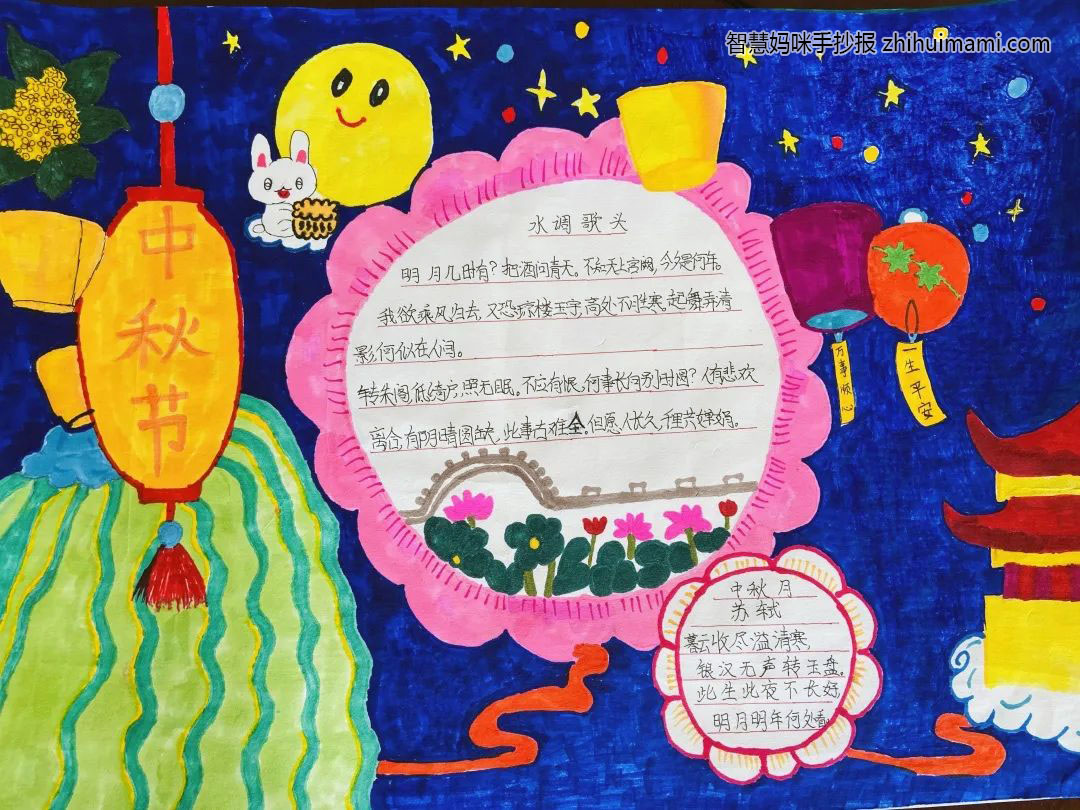 智慧妈咪手抄报 zhihuimami.com
中秋节
水调歌头
明月几时有？把酒问青天。不知天上宫阙，今夕是何年。
我欲乘风归去，又恐琼楼玉宇，高处不胜寒。起舞弄清
影，何似在人间。
转朱阁，低绮户，照无眠。不应有恨，何事长向别时圆？人有悲欢
离合，月有阴晴圆缺，此事古难全。但愿人长久，千里共婵娟。
万事顺心
一生平安
中秋月
苏轼
暮云收尽溢清寒，
银汉无声转玉盘。
此生此夜不长好，
明月明年何处看。